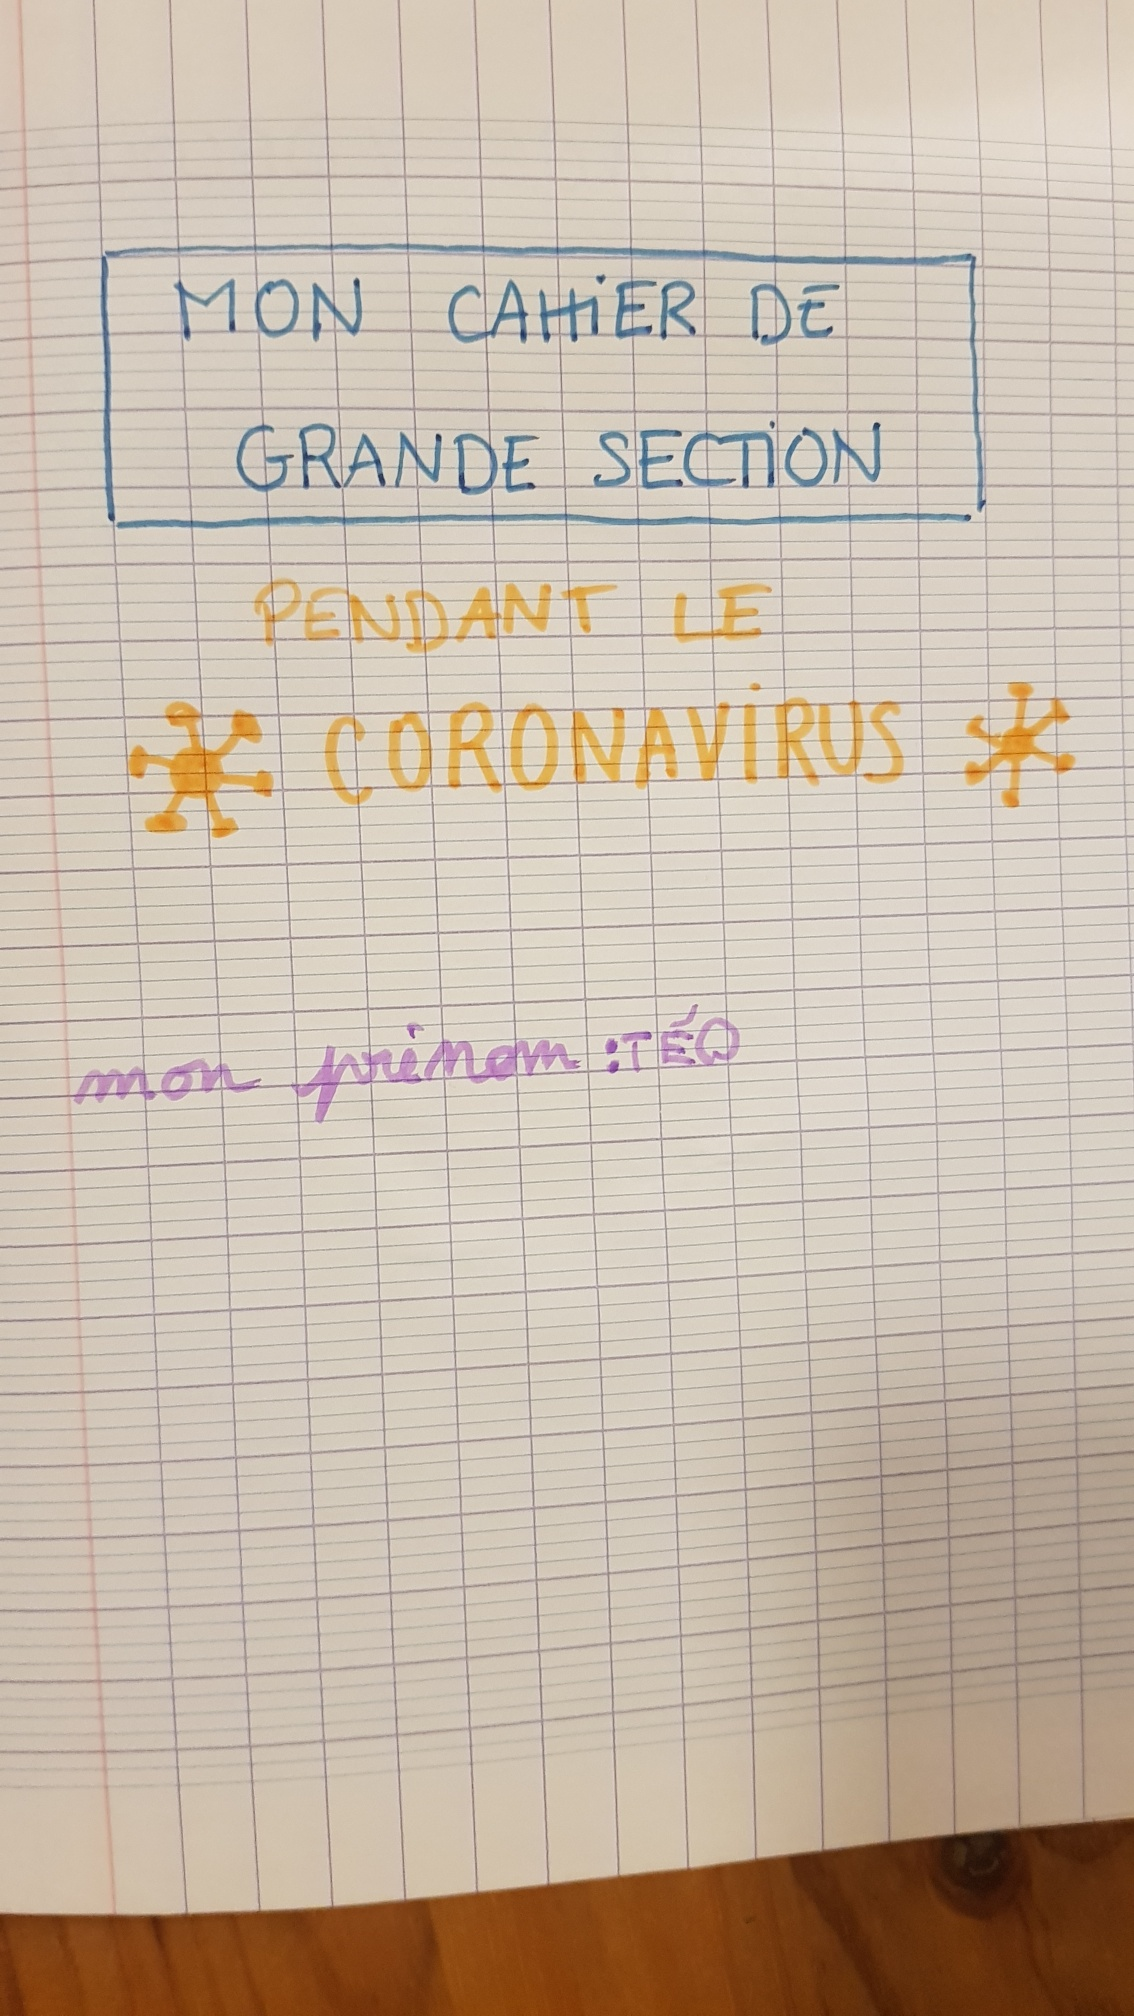 MON CAHiER DE
GRANDE SECTiON
PENDANT LE
CORONAViRUS
mon prénom : TÉO